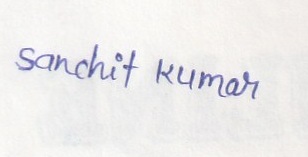 Sanchit Kumar